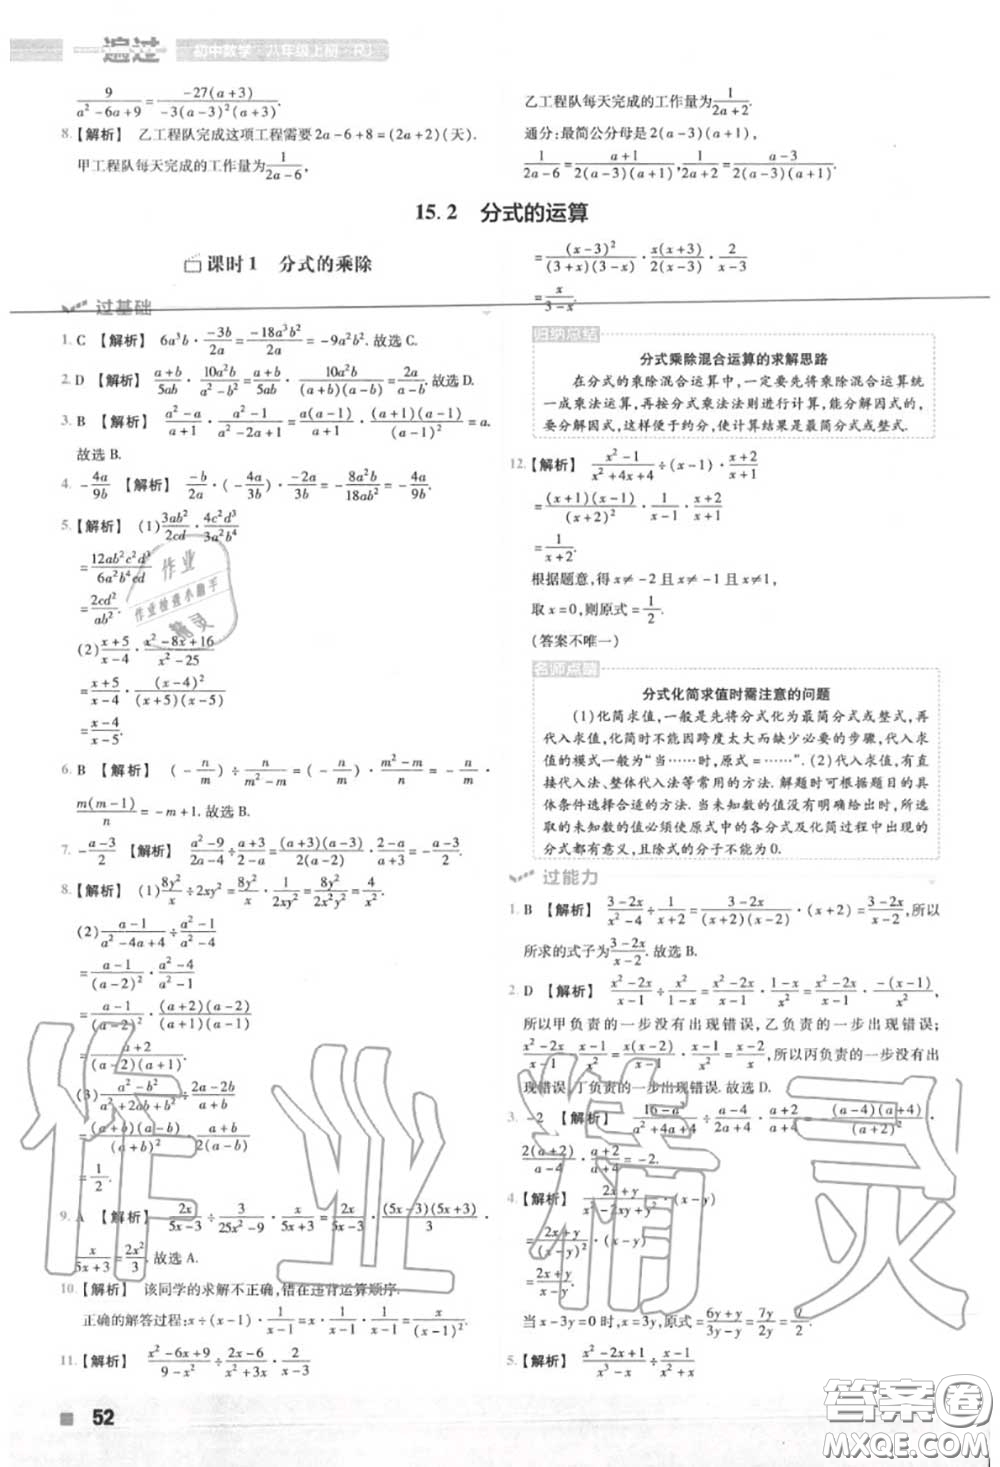 一遍过 初中数学·八年级上册·RJ
9/(a²-6a+9)=-27(a+3)/(-3(a-3)²(a+3)).
8.【解析】 乙工程队完成这项工程需要2a-6+8=(2a+2)(天).
甲工程队每天完成的工作量为1/(2a-6),
乙工程队每天完成的工作量为1/(2a+2).
通分:最简公分母是2(a-3)(a+1),
1/(2a-6)=(a+1)/(2(a-3)(a+1)),1/(2a+2)=(a-3)/(2(a-3)(a+1)).
15.2 分式的运算
课时1 分式的乘除
过基础
1. C 【解析】 6a³b·(-3b)/(2a)=(-18a³b²)/(2a)=-9a²b². 故选C.
2. D 【解析】 (a+b)/(5ab)·10a²b/(a²-b²)=(a+b)/(5ab)·10a²b/((a+b)(a-b))=2a/(a-b). 故选D.
3. B 【解析】 (a²-a)/(a+1)·(a²-1)/(a²-2a+1)=a(a-1)/(a+1)·(a+1)(a-1)/(a-1)²=a.
故选B.
4. -4a/9b 【解析】 (-b)/(2a)·(-4a/3b)·4a/3b=-8a²b/18ab²=-4a/9b.
5.【解析】 (1)3ab²/2cd·4c²d³/3a²b⁴
=12ab²c²d³/6a²b⁴cd
=2cd²/ab².
(2)(x+5)/(x-4)·(x²-8x+16)/(x²-25)
=(x+5)/(x-4)·(x-4)²/((x+5)(x-5))
=(x-4)/(x-5).
6. B 【解析】 (-n/m)÷n/(m²-m)=(-n/m)·(m²-m)/n=-n/m·
m(m-1)/n=-m+1. 故选B.
7. -(a-3)/2 【解析】 (a²-9)/(2a-4)÷(a+3)/(2-a)=(a+3)(a-3)/(2(a-2))·(2-a)/(a+3)=-(a-3)/2.
8.【解析】 (1)8y²/x÷2xy²=8y²/x·1/(2xy²)=8y²/(2x²y²)=4/x².
(2)(a-1)/(a²-4a+4)÷(a²-1)/(a²-4)
=(a-1)/(a-2)²·(a²-4)/(a²-1)
=(a-1)/(a-2)²·(a+2)(a-2)/((a+1)(a-1))
=(a+2)/((a-2)(a+1)).
(3)(a²-b²)/(a²+2ab+b²)÷(2a-2b)/(a+b)
=(a+b)(a-b)/(a+b)²·(a+b)/(2(a-b))
=1/2.
9. A 【解析】 2x/(5x-3)÷3/(25x²-9)·x/(5x+3)=2x/(5x-3)·(5x-3)(5x+3)/3·
x/(5x+3)=2x²/3. 故选A.
10.【解析】 该同学的求解不正确,错在违背运算顺序.
正确的解答过程:x÷(x-1)·1/(x-1)=x·1/(x-1)·1/(x-1)=x/(x-1)².
11.【解析】 (x²-6x+9)/(9-x²)÷(2x-6)/(x²+3x)·2/(x-3)
=(x-3)²/((3+x)(3-x))·x(x+3)/(2(x-3))·2/(x-3)
=x/(3-x).
归纳总结
分式乘除混合运算的求解思路
在分式的乘除混合运算中,一定要先将乘除混合运算统
一成乘法运算,再按分式乘法法则进行计算,能分解因式的,
要分解因式,这样便于约分,使计算结果是最简分式或整式.
12.【解析】 (x²-1)/(x²+4x+4)÷(x-1)·(x+2)/(x+1)
=(x+1)(x-1)/(x+2)²·1/(x-1)·(x+2)/(x+1)
=1/(x+2).
根据题意,得x≠-2且x≠-1且x≠1,
取x=0,则原式=1/2.
(答案不唯一)
名师点睛
分式化简求值时需注意的问题
(1)化简求值,一般是先将分式化为最简分式或整式,再
代入求值,化简时不能因跨度太大而缺少必要的步骤,代入求
值的模式一般为“当……时,原式=……”. (2)代入求值,有直
接代入法、整体代入法等常用的方法. 解题时可根据题目的具
体条件选择合适的方法. 当未知数的值没有明确给出时,所选
取的未知数的值必须使原式中的各分式及化简过程中出现的
分式都有意义,且除式的分子不能为0.
过能力
1. B 【解析】 (3-2x)/(x²-4)÷1/(x+2)=(3-2x)/((x+2)(x-2))·(x+2)=(3-2x)/(x-2),所以
所求的式子为(3-2x)/(x-2). 故选B.
2. D 【解析】 (x²-2x)/(x-1)÷x²/(1-x)=(x²-2x)/(x-1)·(1-x)/x²=(x²-2x)/(x-1)·-(x-1)/x²,
所以甲负责的一步没有出现错误,乙负责的一步出现错误;
(x²-2x)/(x-1)·(x-1)/x²=x(x-2)/(x-1)·(x-1)/x²=(x-2)/x,所以丙负责的一步没有
出现错误,丁负责的一步出现错误. 故选D.
3. -2 【解析】 (16-a²)/(a²+4a+4)÷(a-4)/(2a+4)·(a+2)/(a+4)=-(a-4)(a+4)/(a+2)²·
2(a+2)/(a-4)·(a+2)/(a+4)=-2.
4.【解析】 (2x+y)/(x²-2xy+y²)·(x-y)
=(2x+y)/(x-y)²·(x-y)
=(2x+y)/(x-y).
当x-3y=0时,x=3y,原式=(6y+y)/(3y-y)=7y/2y=7/2.
5.【解析】 (x²-2x+1)/(x³-x)÷(x-1)/x
52
作业精灵
作业
作业检查小助手
精灵
答案圈
MXQE.COM